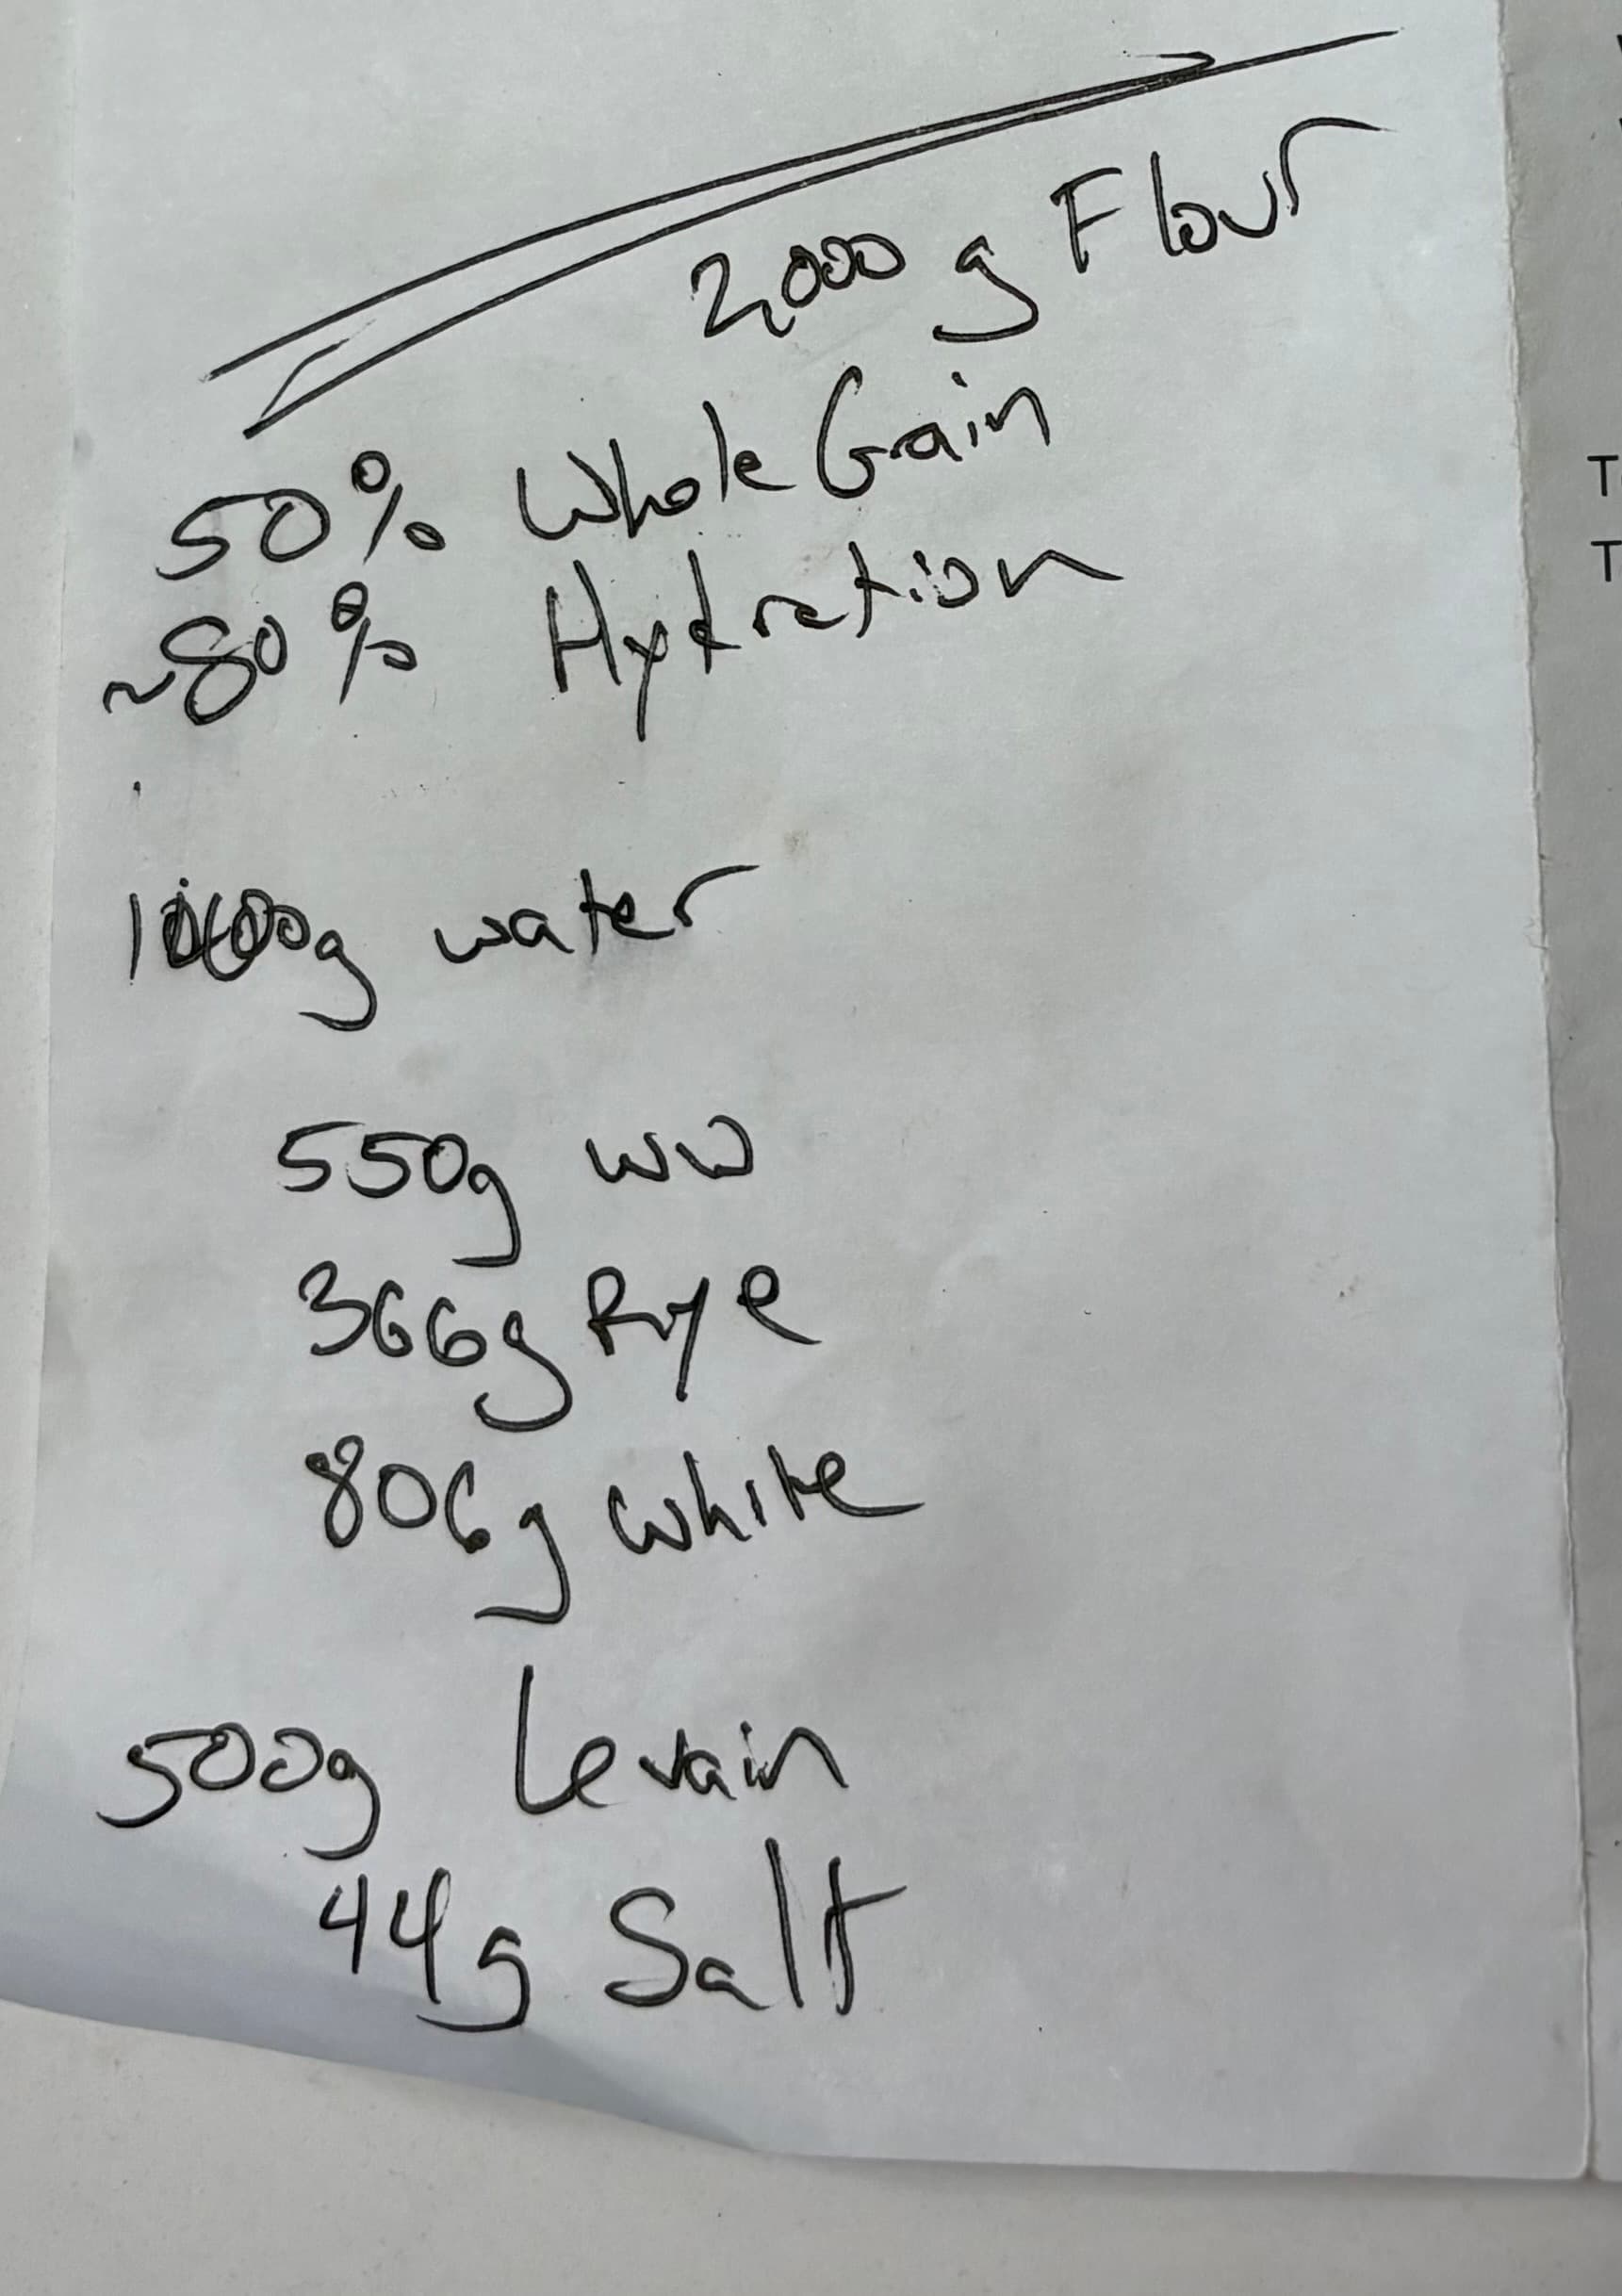 2,000 g Flour
50% Whole Grain
~80% Hydration
water
550g WW
366g Rye
806g White
500g Levain
44g Salt